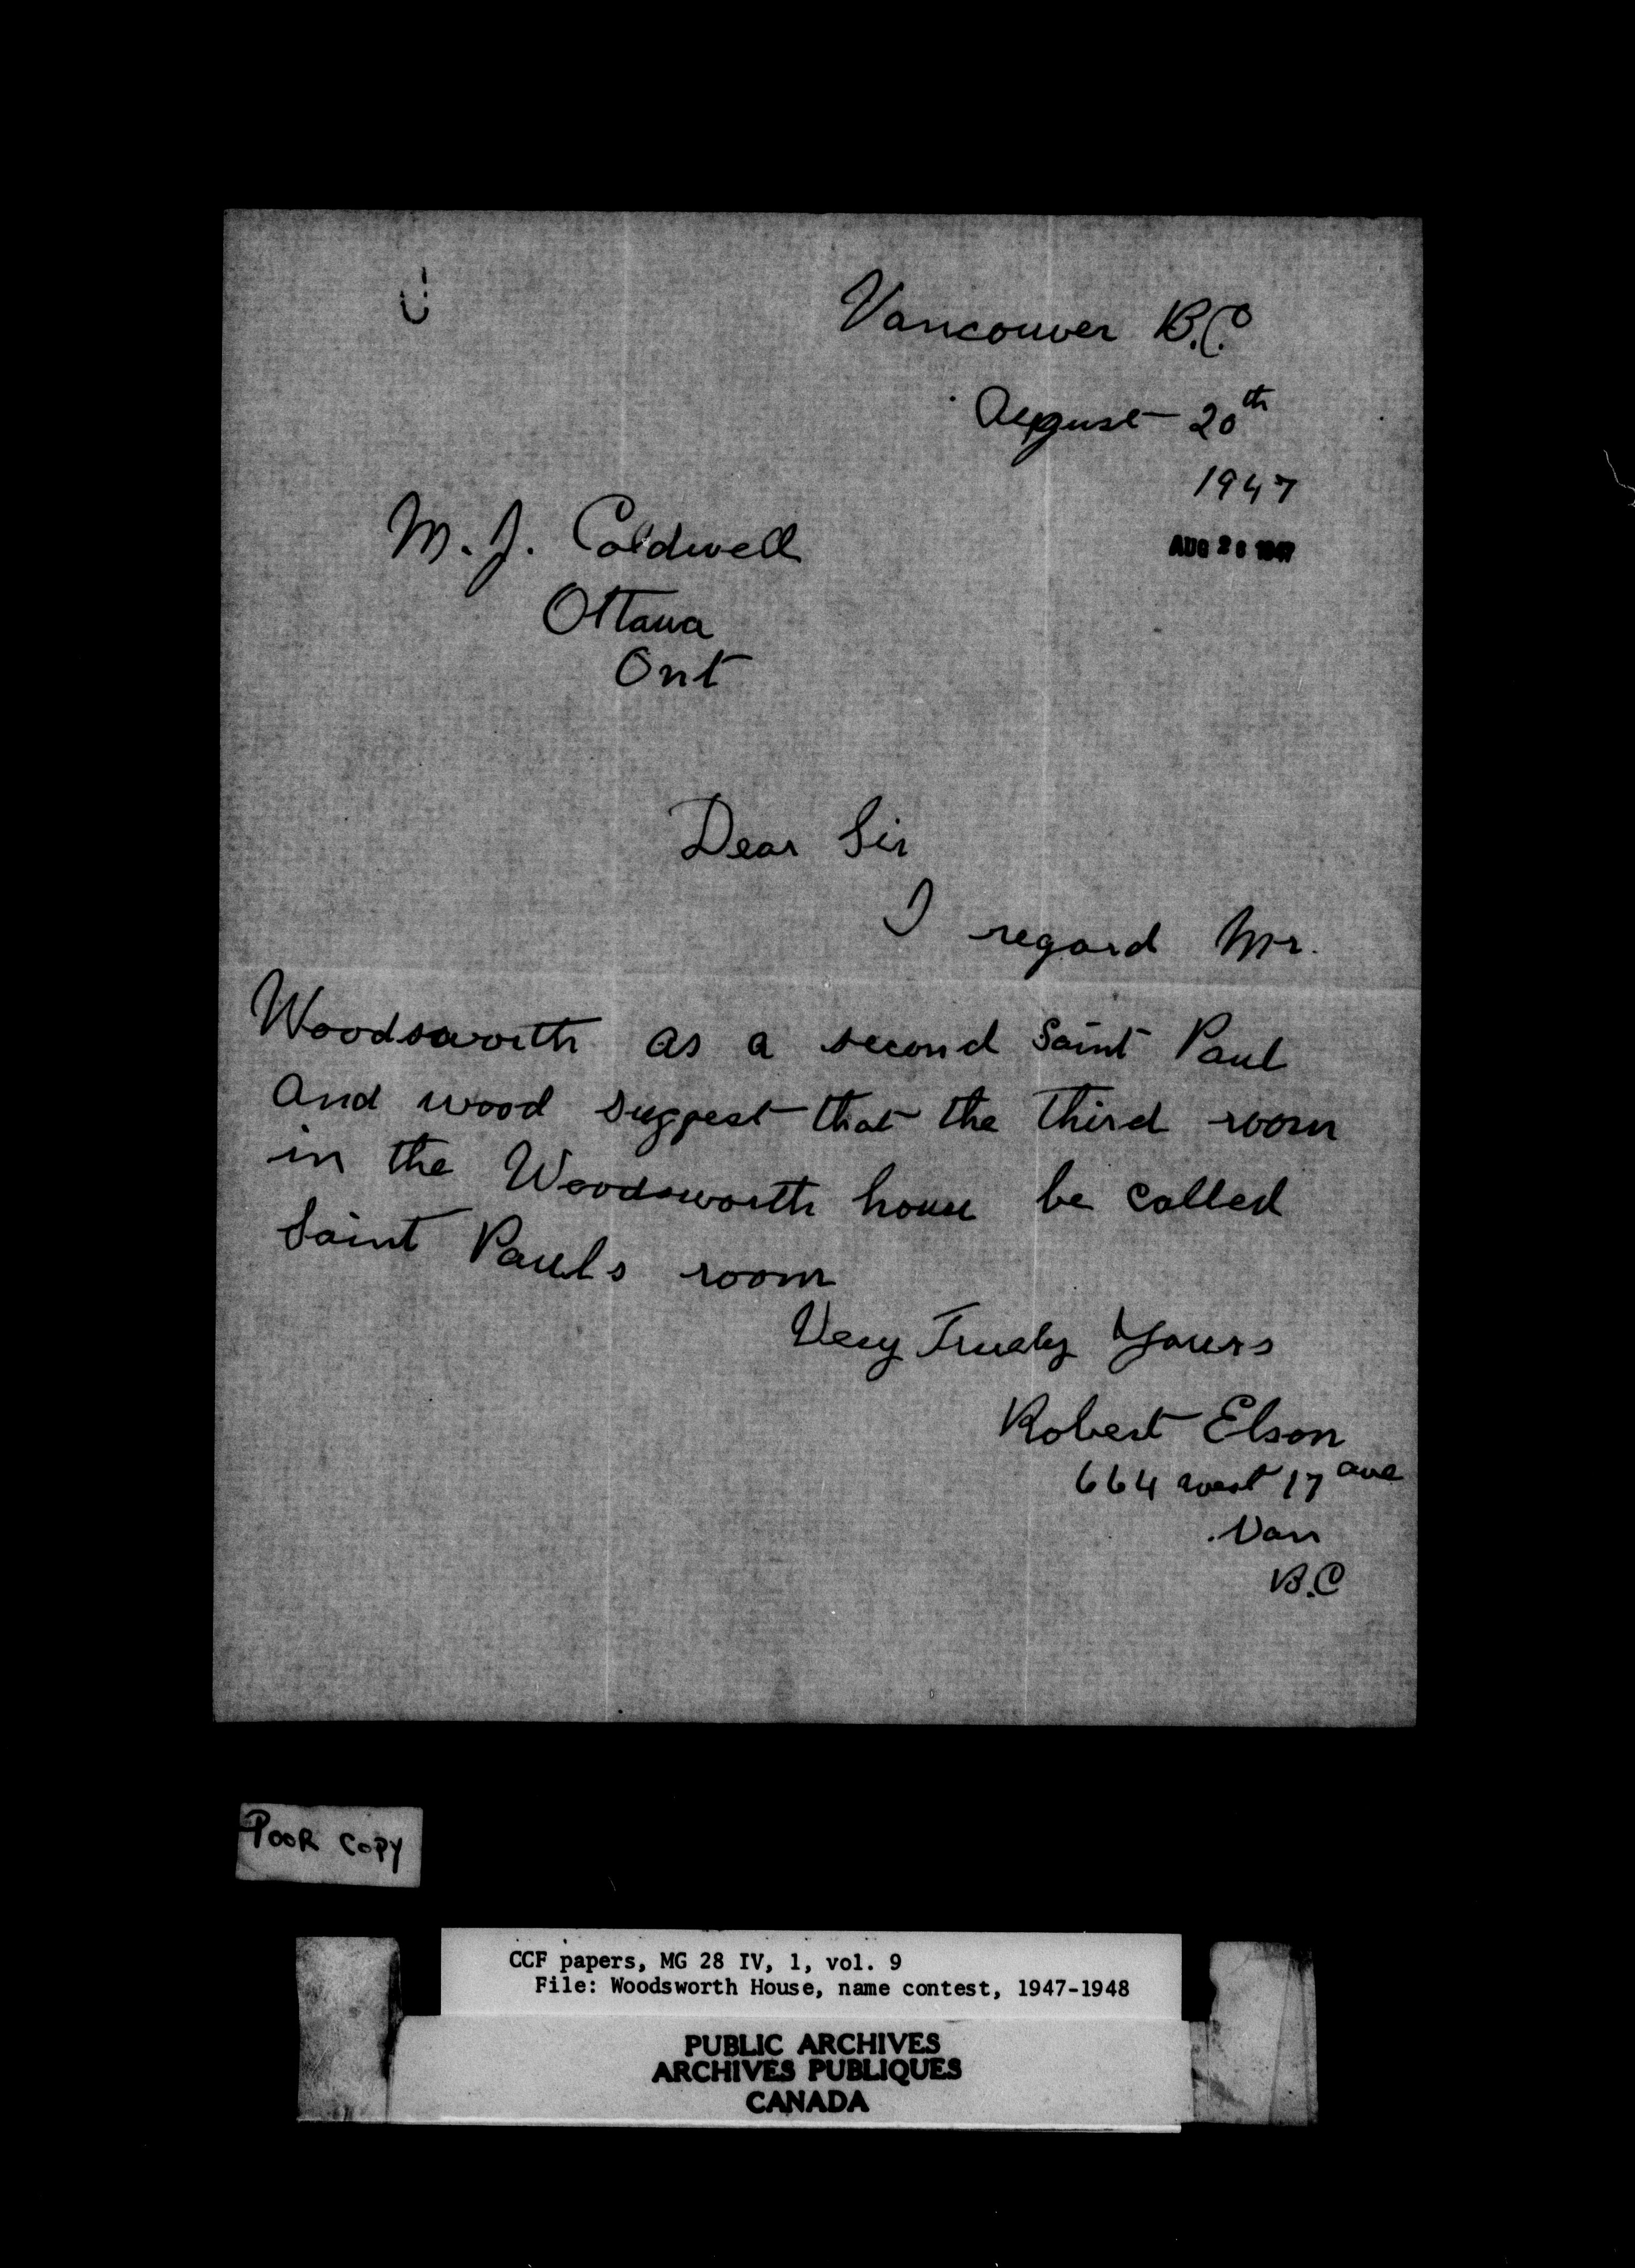 Vancouver B.C.
August 20th
1947
AUG 26 1947
M. J. Coldwell
Ottawa
Ont
Dear Sir
I regard Mr.
Woodsworth as a second Saint Paul
and wood suggest that the third room
in the Woodsworth house be called
Saint Pauls room
Very Truely Yours
Robert Elson
664 west 17 ave
Van
B.C
POOR COPY
CCF papers, MG 28 IV, 1, vol. 9
File: Woodsworth House, name contest, 1947-1948
PUBLIC ARCHIVES
ARCHIVES PUBLIQUES
CANADA